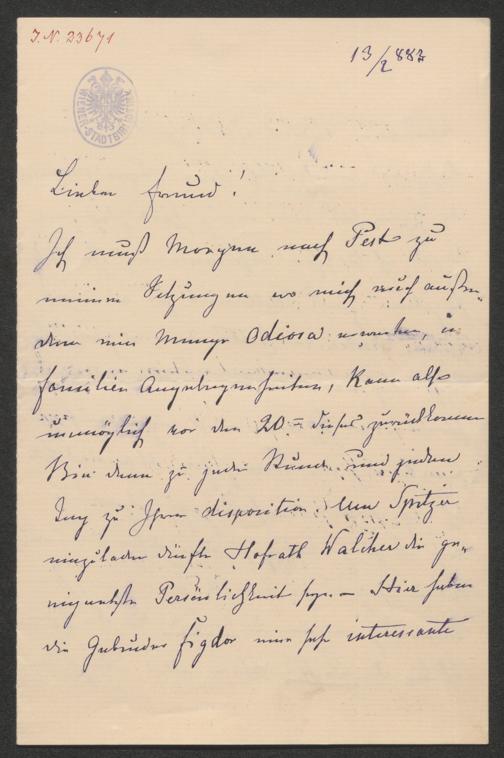 I. N. 23671
13/2 883
WIENER STADTBIBLIOTHEK
Lieber Freund!
Ich muß Morgen nach Pest zu
meinen Sitzungen wo mich auch außer-
dem eine Menge Odiosa erwarten, in
familien Angelegenheiten, kann also
unmöglich vor den 20ten dieses zurückkommen
Bin dann zu jeder Stunde und jeden
Tag zu Ihrer disposition. Um Spitzer
einzuladen dürfte Hofrath Walcher die ge-
eignetste Persönlichkeit seyn – Hier haben
die Gebrüder Figdor eine sehr interessante